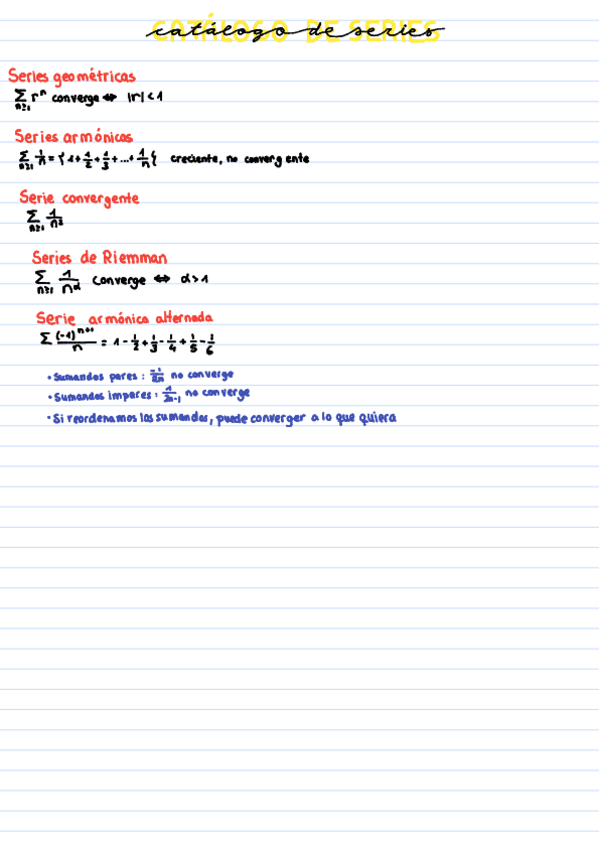 catálogo de series
Series geométricas
∑ n≥1 rⁿ converge ⇔ |r| < 1
Series armónicas
∑ n≥1 1/n = {1 + 1/2 + 1/3 + ... + 1/n} creciente, no convergente
Serie convergente
∑ n≥1 1/n²
Series de Riemman
∑ n≥1 1/n^α converge ⇔ α > 1
Serie armónica alternada
∑ (-1)ⁿ⁺¹/n = 1 - 1/2 + 1/3 - 1/4 + 1/5 - 1/6
• Sumandos pares: -1/2n no converge
• Sumandos impares: 1/2n-1 no converge
• Si reordenamos los sumandos, puede converger a lo que quiera